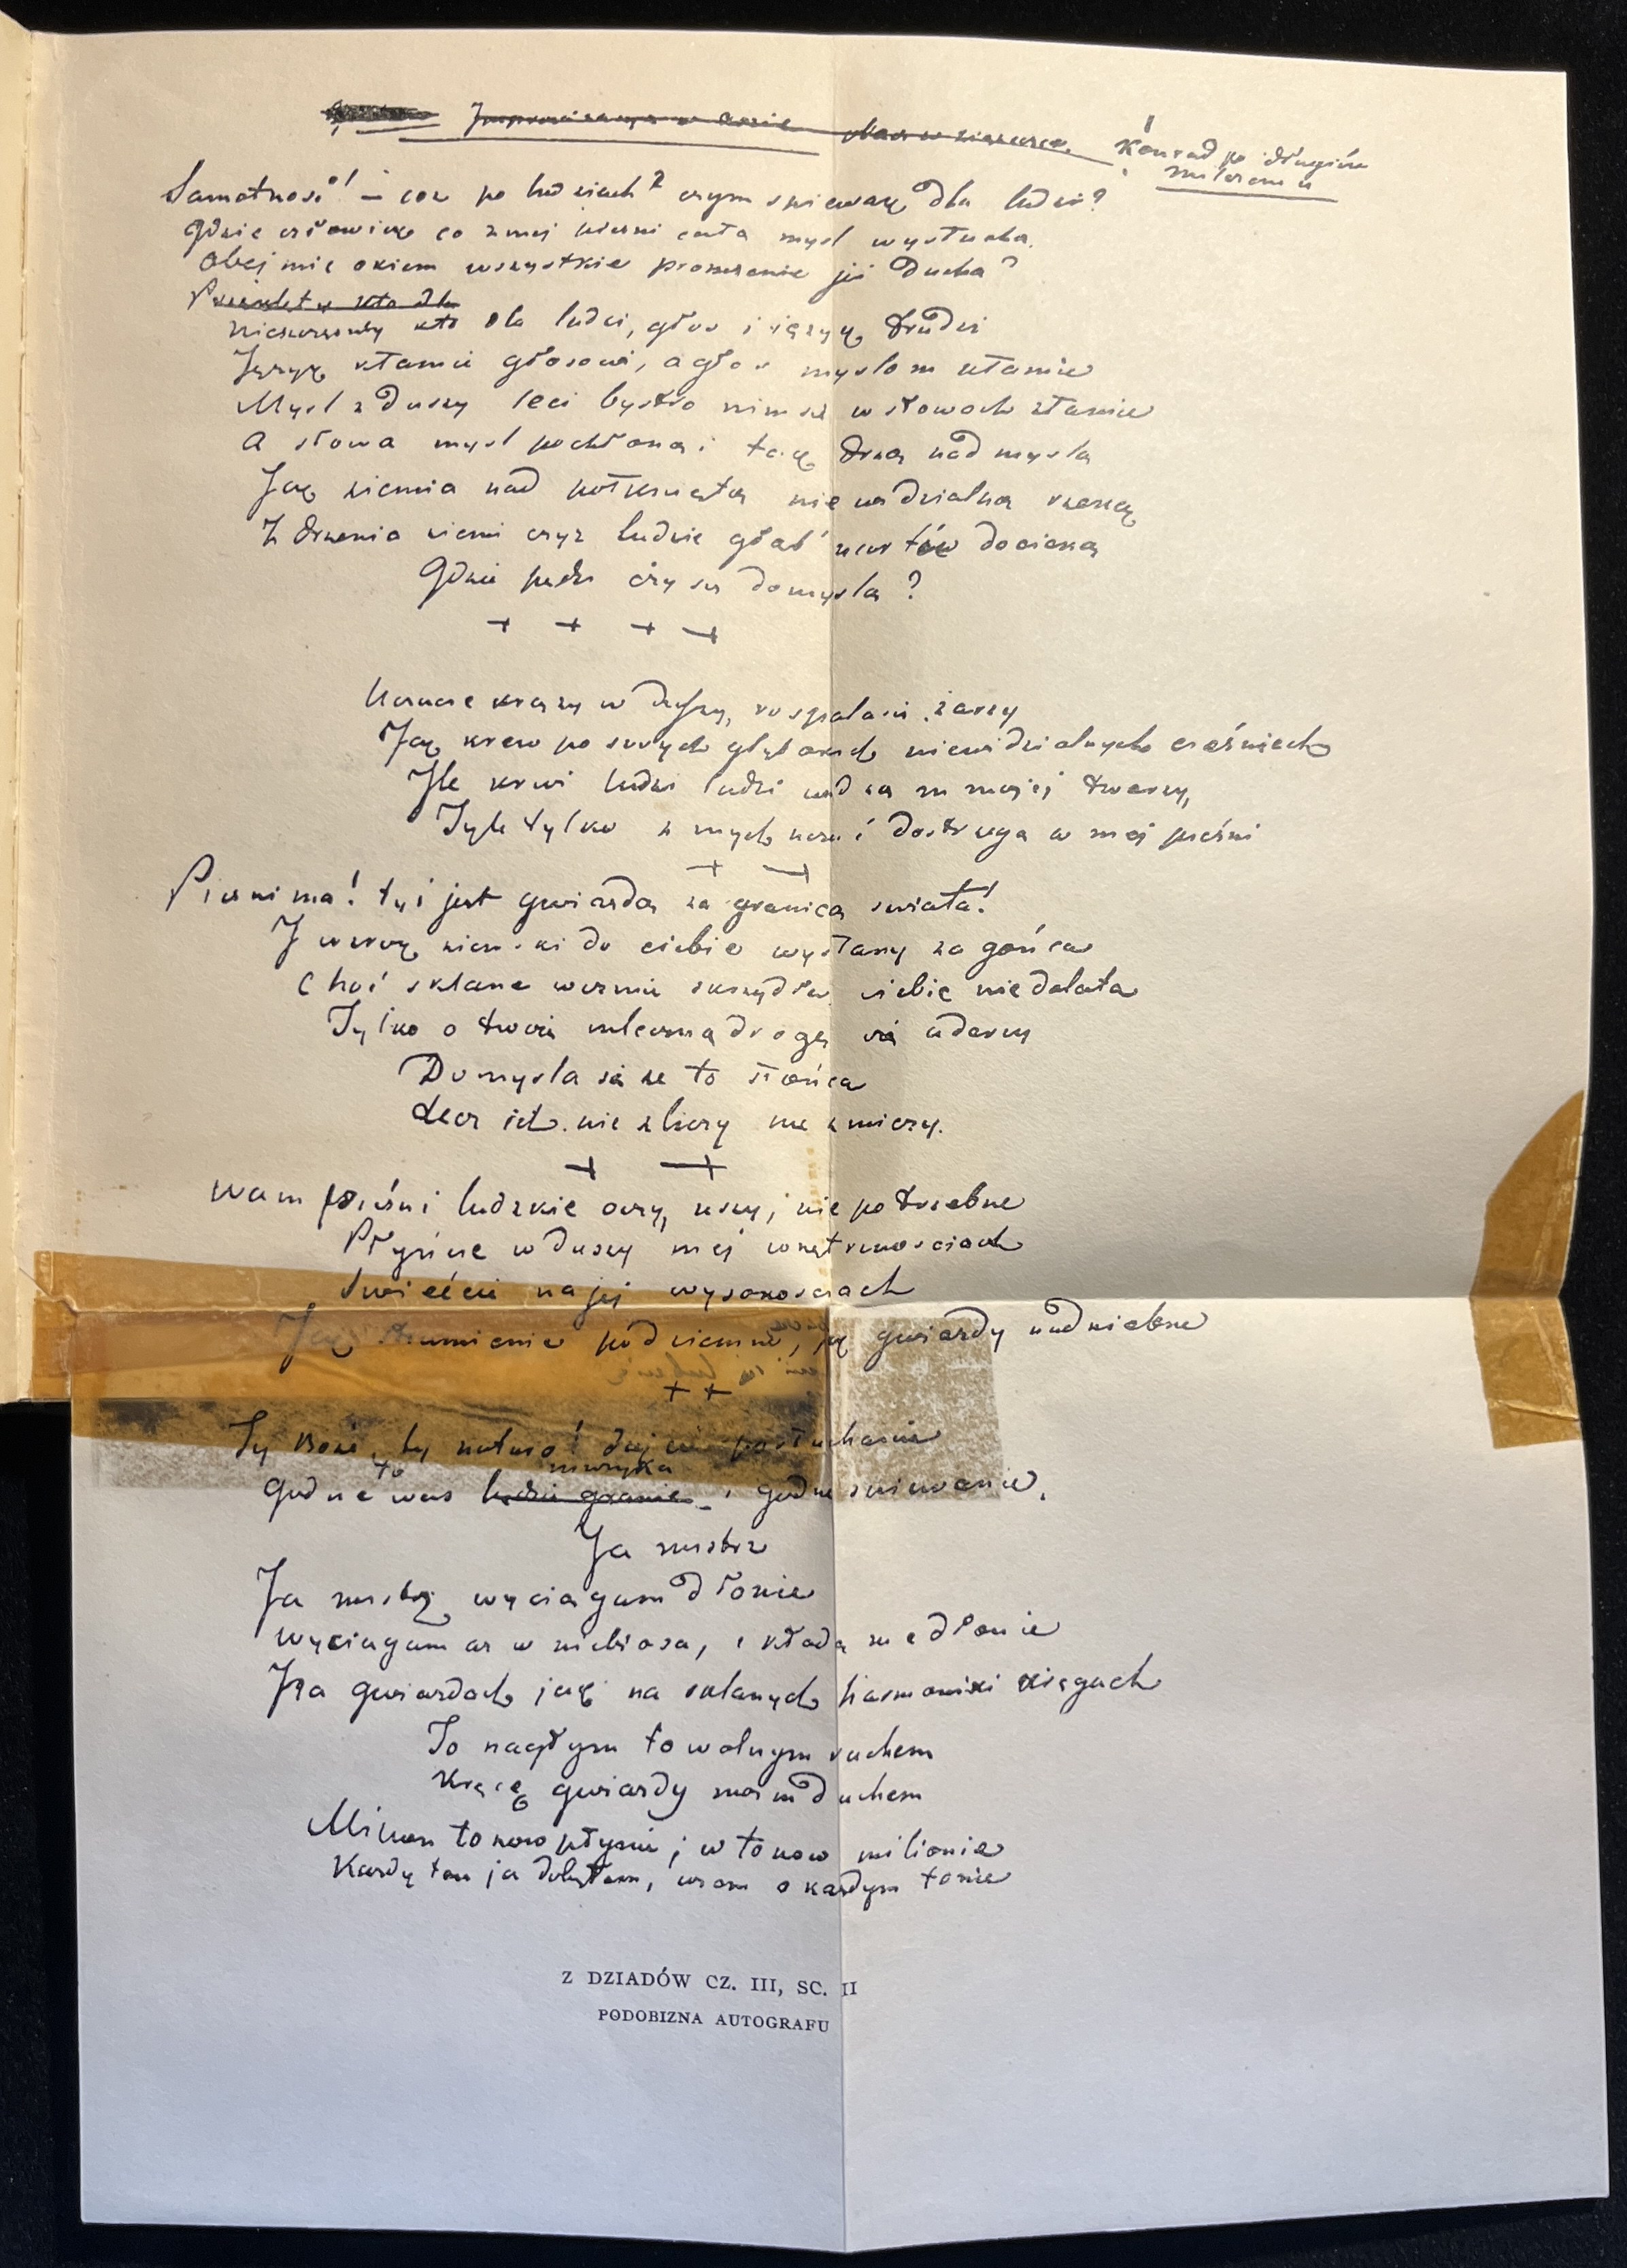 Improwizacya w
Konrad po długiém
milczeniu
Samotność! – coż po ludziach? czym spiewak dla ludzi?
Gdzie człowiek co z mej piesni cała mysl wysłucha.
Obejmie okiem wszystkie promienie jej Ducha?
Przeklęty kto dla
Nieszczęsny kto dla ludzi, głos i język trudzi
Język kłamie głosowi, a głos myslom kłamie
Mysl z duszy leci bystro nim się w słowach złamie
A słowa mysl pochłoną i tak drżą nad myslą
Jak ziemia nad połkniętą niewidzialną rzeką
Z drżenia ziemi czyż ludzie głąb nurtów docieką
Gdzie pędzi czy się domyslą?
+ + + +
Uczucie krąży w duszy, rospala się żarzy
Jak krew po swych głębokich niewidzialnych cieśniach
Ile krwi ludzi ludzi widzą w mojej twarzy,
Tyle tylko z mych uczuć dostrzegą w mej pieśni
+ +
Piesni ma! tyś jest gwiazdą za granicą swiata!
I wzrok ziemski do ciebie wysłany za gońca
Choć sklane weźmie skrzydła ciebie niedolata
Tylko o twoię mleczną drogę się uderzy
Domysla się że to słońca
Lecz ich nie zliczy nie zmierzy.
+ +
Wam pieśni ludzkie oczy, uszy, niepotrzebne
Płyńcie w duszy mej wnętrznosciach
Swiećcie na jej wysokosciach
Jak strumienie podziemne, jak gwiazdy nadniebne
+ +
Ty Boże, ty naturo! dajcie posłuchanie
to muzyka
Godne was ludzi granie i godne spiewanie.
Ja mistrz
Ja mistrz wyciągam dłonie
Wyciągam aż w niebiosa, i kładę me dłonie
Na gwiazdach jak na sklanych harmoniki kręgach
To nagłym to wolnym ruchem
Kręcę gwiazdy moim duchem
Milion tonow płynie; w tonow milionie
Każdy ton ja dobyłem, wiem o każdym tonie
Z DZIADÓW CZ. III, SC. II
PODOBIZNA AUTOGRAFU